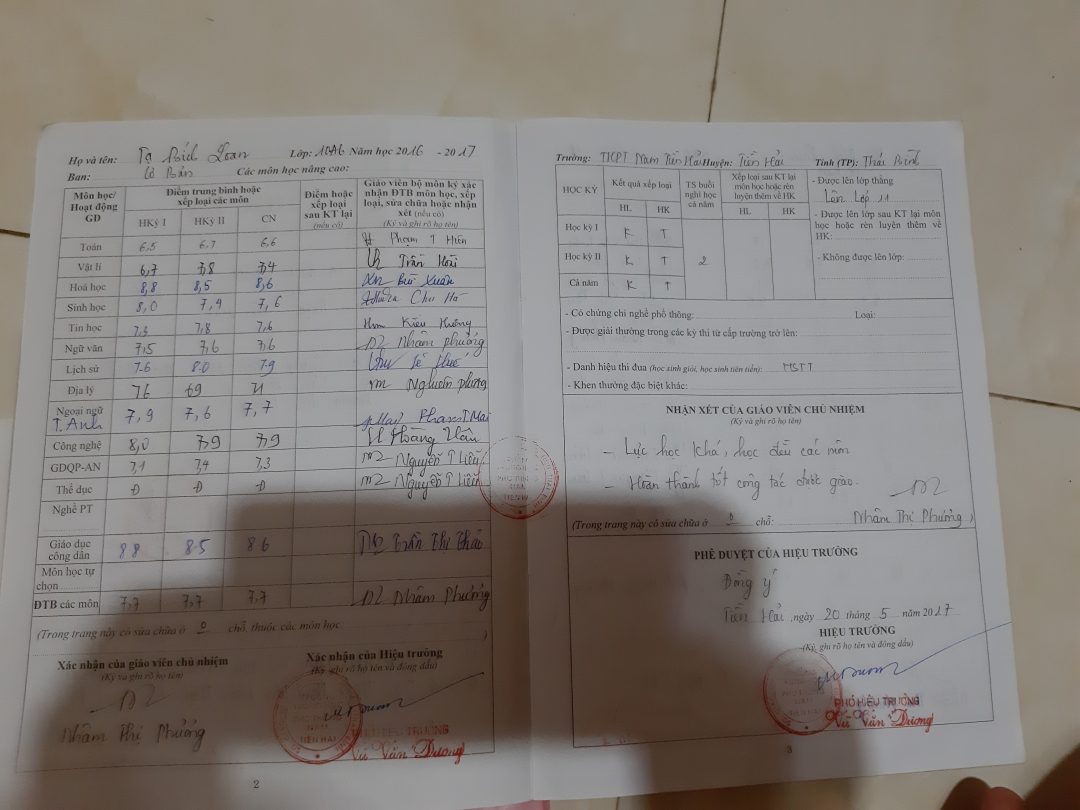 Họ và tên: Tạ Bích Loan Lớp: 10A6 Năm học 2016 - 2017
Ban: Cơ Bản Các môn học nâng cao:
Môn học/ Hoạt động GD
Điểm trung bình hoặc xếp loại các môn
HKỳ I HKỳ II CN
Điểm hoặc xếp loại sau KT lại (nếu có)
Giáo viên bộ môn ký xác nhận ĐTB môn học, xếp loại, sửa chữa hoặc nhận xét (nếu có)
(Ký và ghi rõ họ tên)
Toán 6,5 6,7 6,6 Phạm T Hiên
Vật lí 6,7 7,8 7,4 Trần Hoài
Hoá học 8,8 8,5 8,6 Bùi Xuân
Sinh học 8,0 7,4 7,6 Chu Hà
Tin học 7,3 7,8 7,6 Kiều Hường
Ngữ văn 7,5 7,6 7,6 Nhâm Phường
Lịch sử 7.6 8.0 7.9
Địa lý 7,6 6,9 7,1
Ngoại ngữ T. Anh 7,9 7,6 7,7 Phạm T Mai
Công nghệ 8,0 7,9 7,9 Hoàng Vân
GDQP-AN 7,1 7,4 7,3 Nguyễn T Liễu
Thể dục Đ Đ Đ Nguyễn T Liễu
Nghề PT
Giáo dục công dân 8.8 8.5 8.6 Trần Thị Thảo
Môn học tự chọn
ĐTB các môn 7,7 7,7 7,7 Nhâm Phường
(Trong trang này có sửa chữa ở 0 chỗ, thuộc các môn học )
Xác nhận của giáo viên chủ nhiệm
(Ký và ghi rõ họ tên)
Nhâm Thị Phường
Xác nhận của Hiệu trưởng
(Ký, ghi rõ họ tên và đóng dấu)
PHÓ HIỆU TRƯỞNG
Vũ Văn Dương
2
Trường: THPT Nam Tiền Hải Huyện: Tiền Hải Tỉnh (TP): Thái Bình
HỌC KỲ
Kết quả xếp loại
HL HK
TS buổi nghỉ học cả năm
Xếp loại sau KT lại môn học hoặc rèn luyện thêm về HK
HL HK
Học kỳ I K T
Học kỳ II K T 2
Cả năm K T
- Được lên lớp thẳng
Lên Lớp 11
- Được lên lớp sau KT lại môn học hoặc rèn luyện thêm về HK:
- Không được lên lớp:
- Có chứng chỉ nghề phổ thông: Loại:
- Được giải thưởng trong các kỳ thi từ cấp trường trở lên:
- Danh hiệu thi đua (học sinh giỏi, học sinh tiên tiến): HSTT
- Khen thưởng đặc biệt khác:
NHẬN XÉT CỦA GIÁO VIÊN CHỦ NHIỆM
(Ký và ghi rõ họ tên)
- Lực học Khá, học đều các môn
- Hoàn thành tốt công tác được giao.
(Trong trang này có sửa chữa ở 0 chỗ: Nhâm Thị Phường )
PHÊ DUYỆT CỦA HIỆU TRƯỞNG
Đồng ý
Tiền Hải, ngày 20 tháng 5 năm 2017
HIỆU TRƯỞNG
(Ký, ghi rõ họ tên và đóng dấu)
PHÓ HIỆU TRƯỞNG
Vũ Văn Dương
3